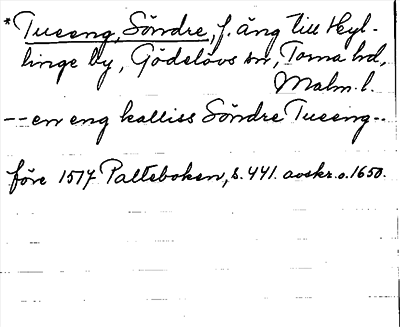 *Tuseng, Söndre, f. äng till Hyl-
linge by, Gödelövs sn, Torna hd,
Malm. l.
-- en eng kalliss Söndre Tuseng --
före 1517 Palteboken, s. 441. avskr. o. 1650.